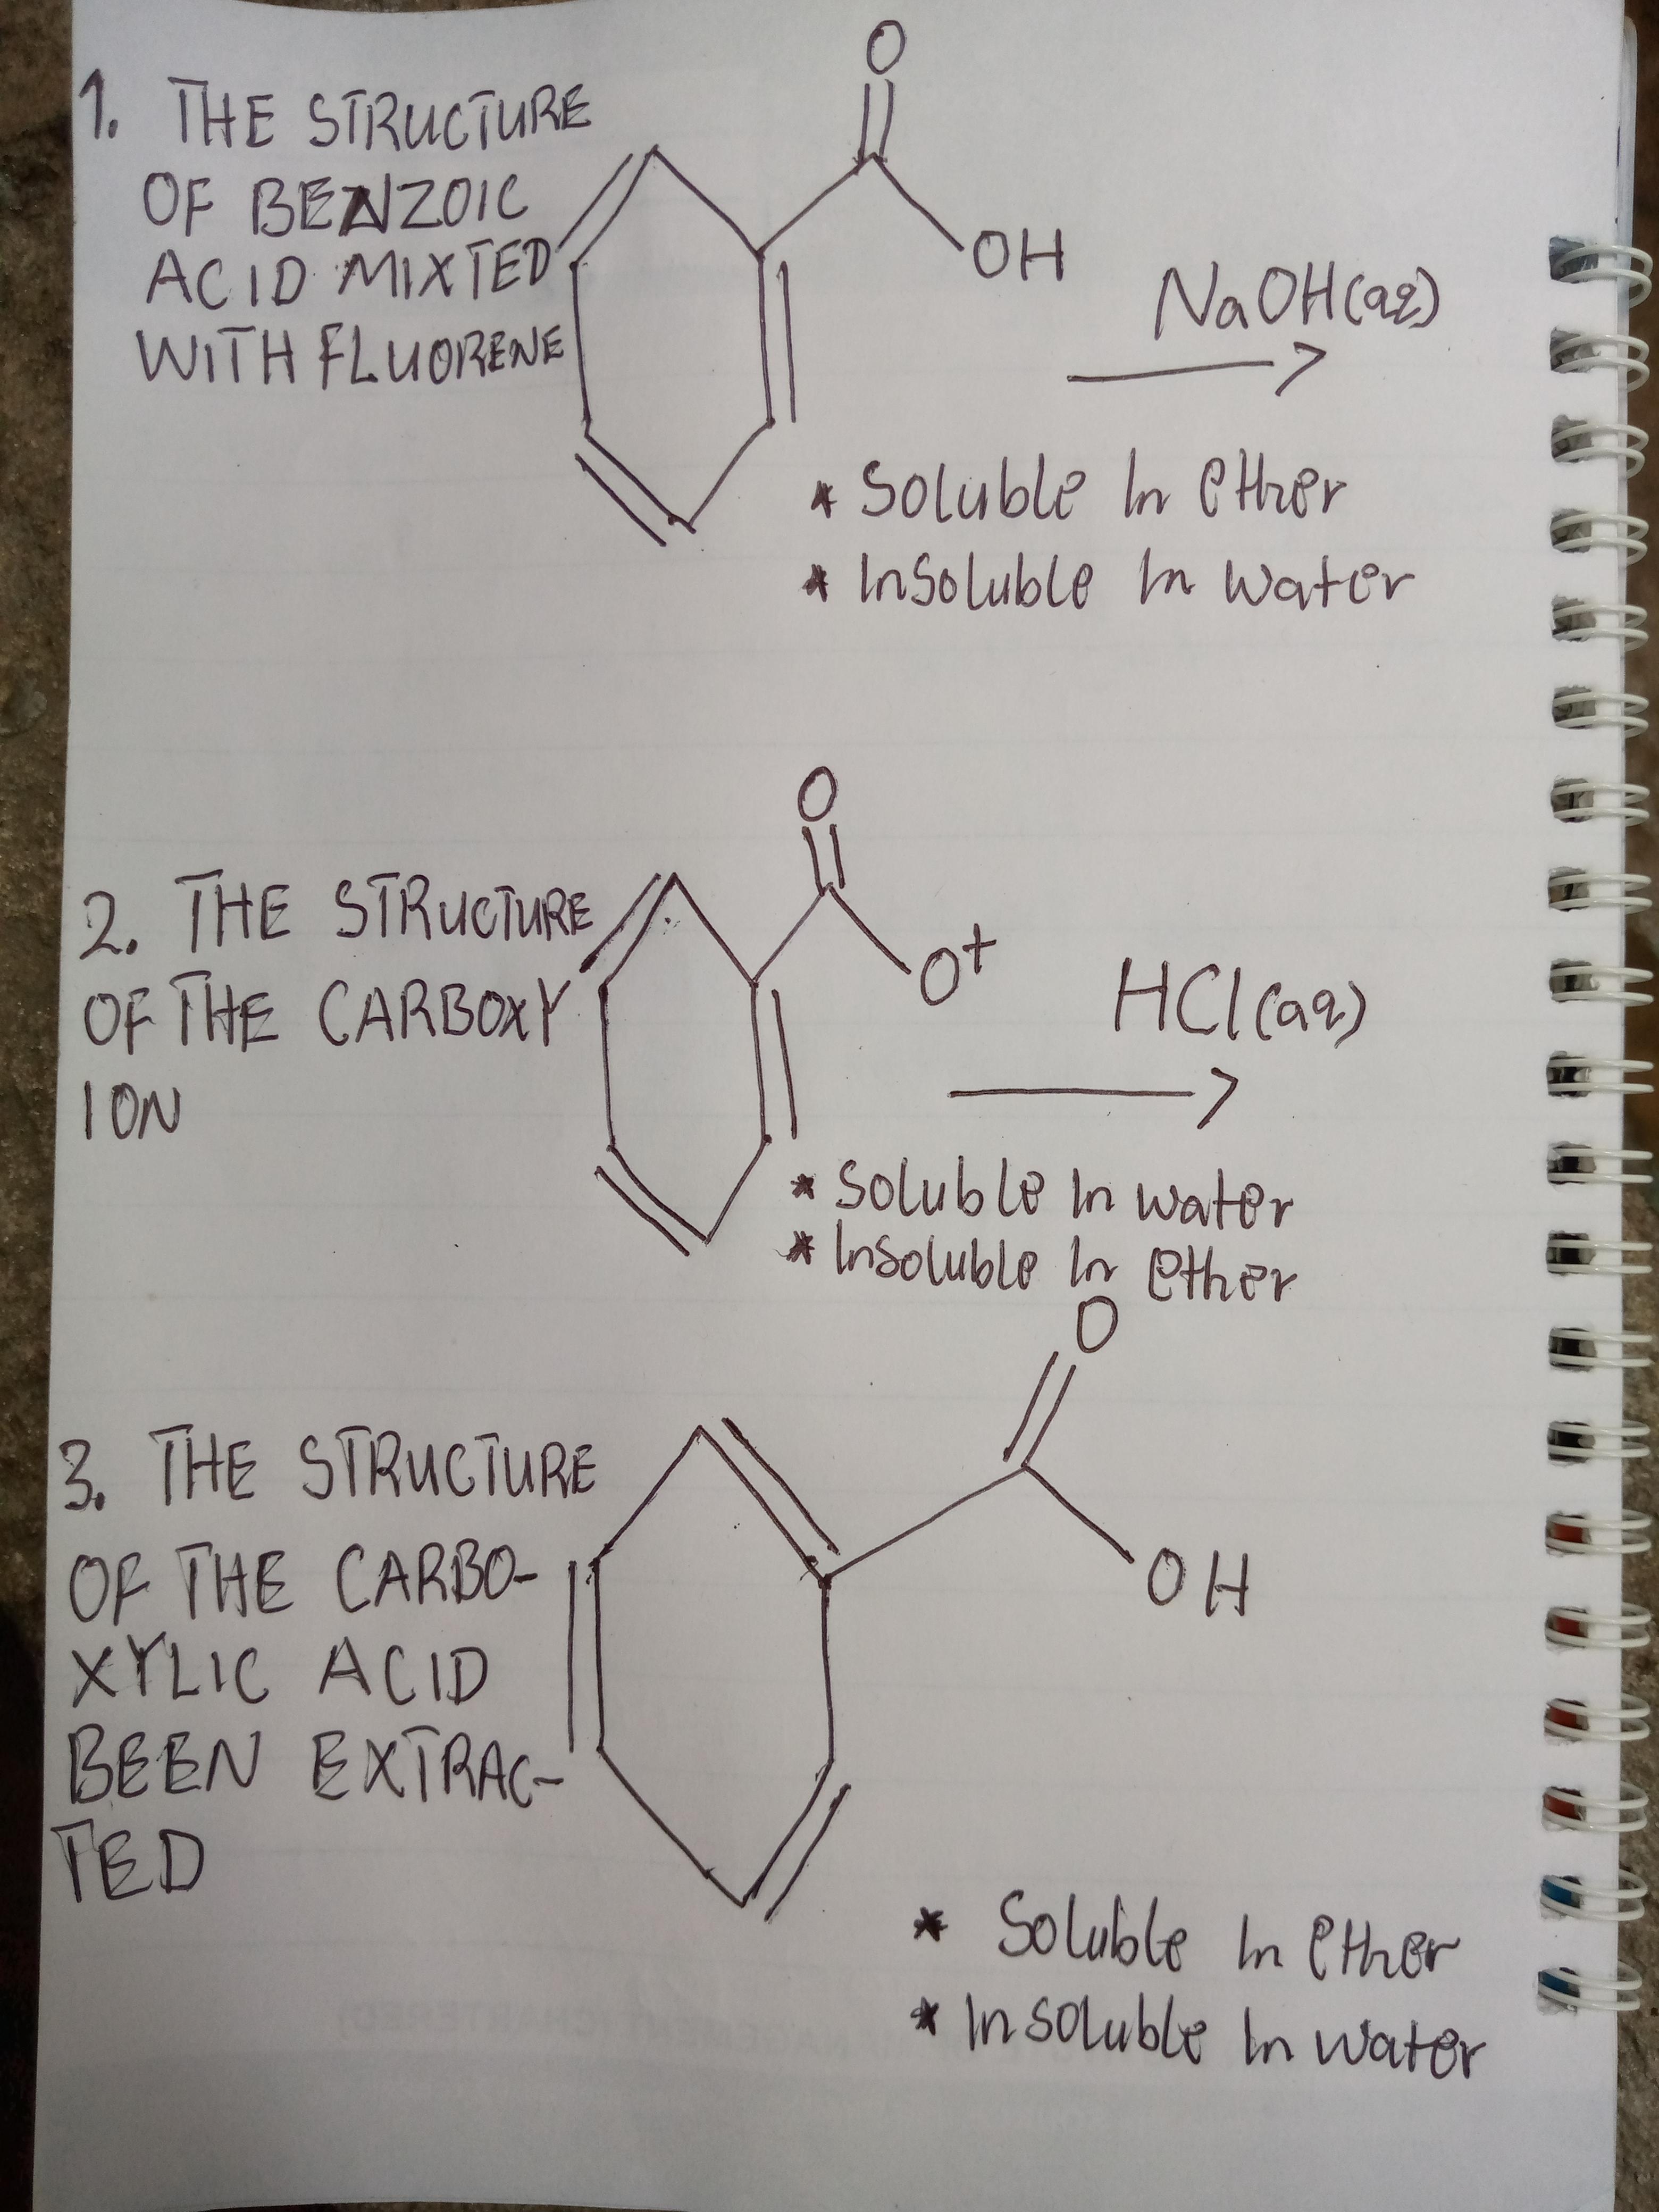 O
1. THE STRUCTURE
OF BENZOIC
ACID MIXTED
WITH FLUORENE
OH
NaOH(aq)
* Soluble In ether
* Insoluble In water
O
2. THE STRUCTURE
OF THE CARBOXY
ION
O+
HCl(aq)
* Soluble In water
* Insoluble In ether
O
3. THE STRUCTURE
OF THE CARBO-
XYLIC ACID
BEEN EXTRAC-
TED
OH
* Soluble In ether
* Insoluble In water